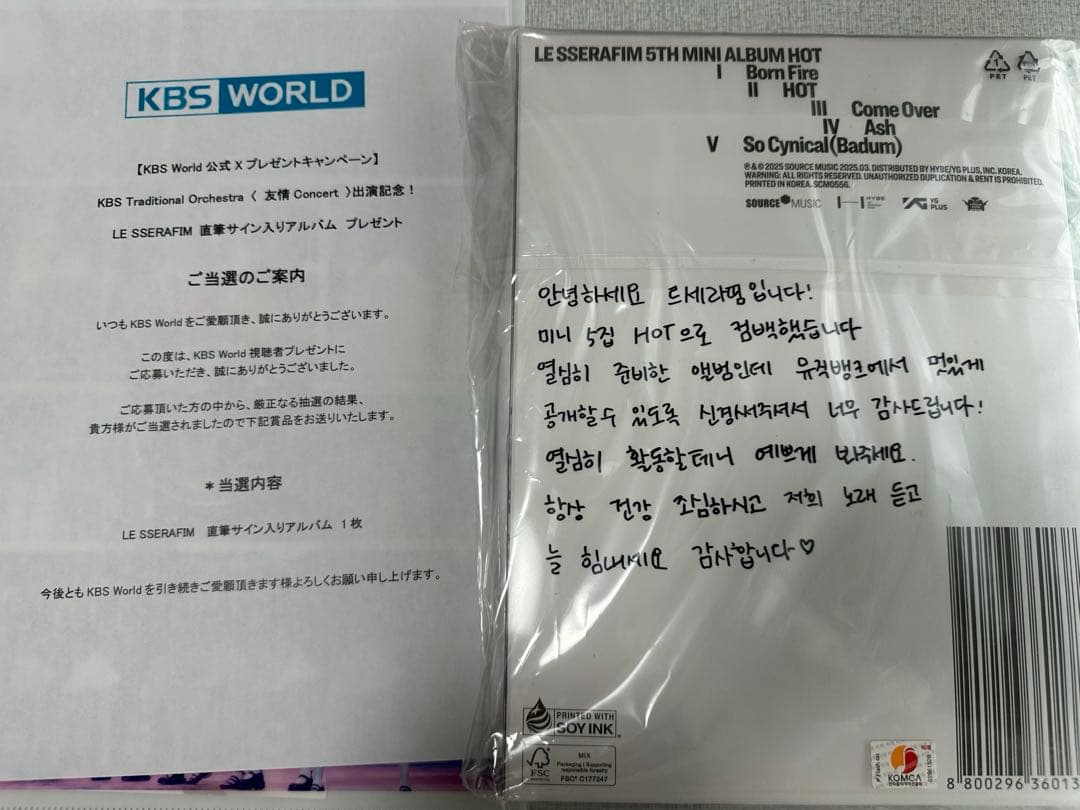 KBS WORLD
【KBS World 公式 X プレゼントキャンペーン】
KBS Traditional Orchestra 〈 友情 Concert 〉出演記念！
LE SSERAFIM 直筆サイン入りアルバム プレゼント
ご当選のご案内
いつもKBS Worldをご愛顧頂き、誠にありがとうございます。
この度は、KBS World 視聴者プレゼントに
ご応募いただき、誠にありがとうございました。
ご応募頂いた方の中から、厳正なる抽選の結果、
貴方様がご当選されましたので下記賞品をお送りいたします。
＊当選内容
LE SSERAFIM 直筆サイン入りアルバム 1枚
今後ともKBS Worldを引き続きご愛顧頂きます様よろしくお願い申し上げます。
LE SSERAFIM 5TH MINI ALBUM HOT
I Born Fire
II HOT
III Come Over
IV Ash
V So Cynical (Badum)
℗ & © 2025 SOURCE MUSIC 2025.03. DISTRIBUTED BY HYBE/YG PLUS, INC. KOREA.
WARNING: ALL RIGHTS RESERVED. UNAUTHORIZED DUPLICATION & RENT IS PROHIBITED.
PRINTED IN KOREA. SCM0556.
SOURCE MUSIC HYBE YG PLUS
1 PET
PET
안녕하세요 르세라핌입니다!
미니 5집 HOT으로 컴백했습니다
열심히 준비한 앨범인데 뮤직뱅크에서 멋있게
공개할수 있도록 신경써주셔서 너무 감사드립니다!
열심히 활동할테니 예쁘게 봐주세요.
항상 건강 조심하시고 저희 노래 듣고
늘 힘내세요 감사합니다♡
PRINTED WITH
SOY INK
FSC
MIX
Packaging | Supporting
responsible forestry
FSC® C177247
KOMCA
8 800296 36013